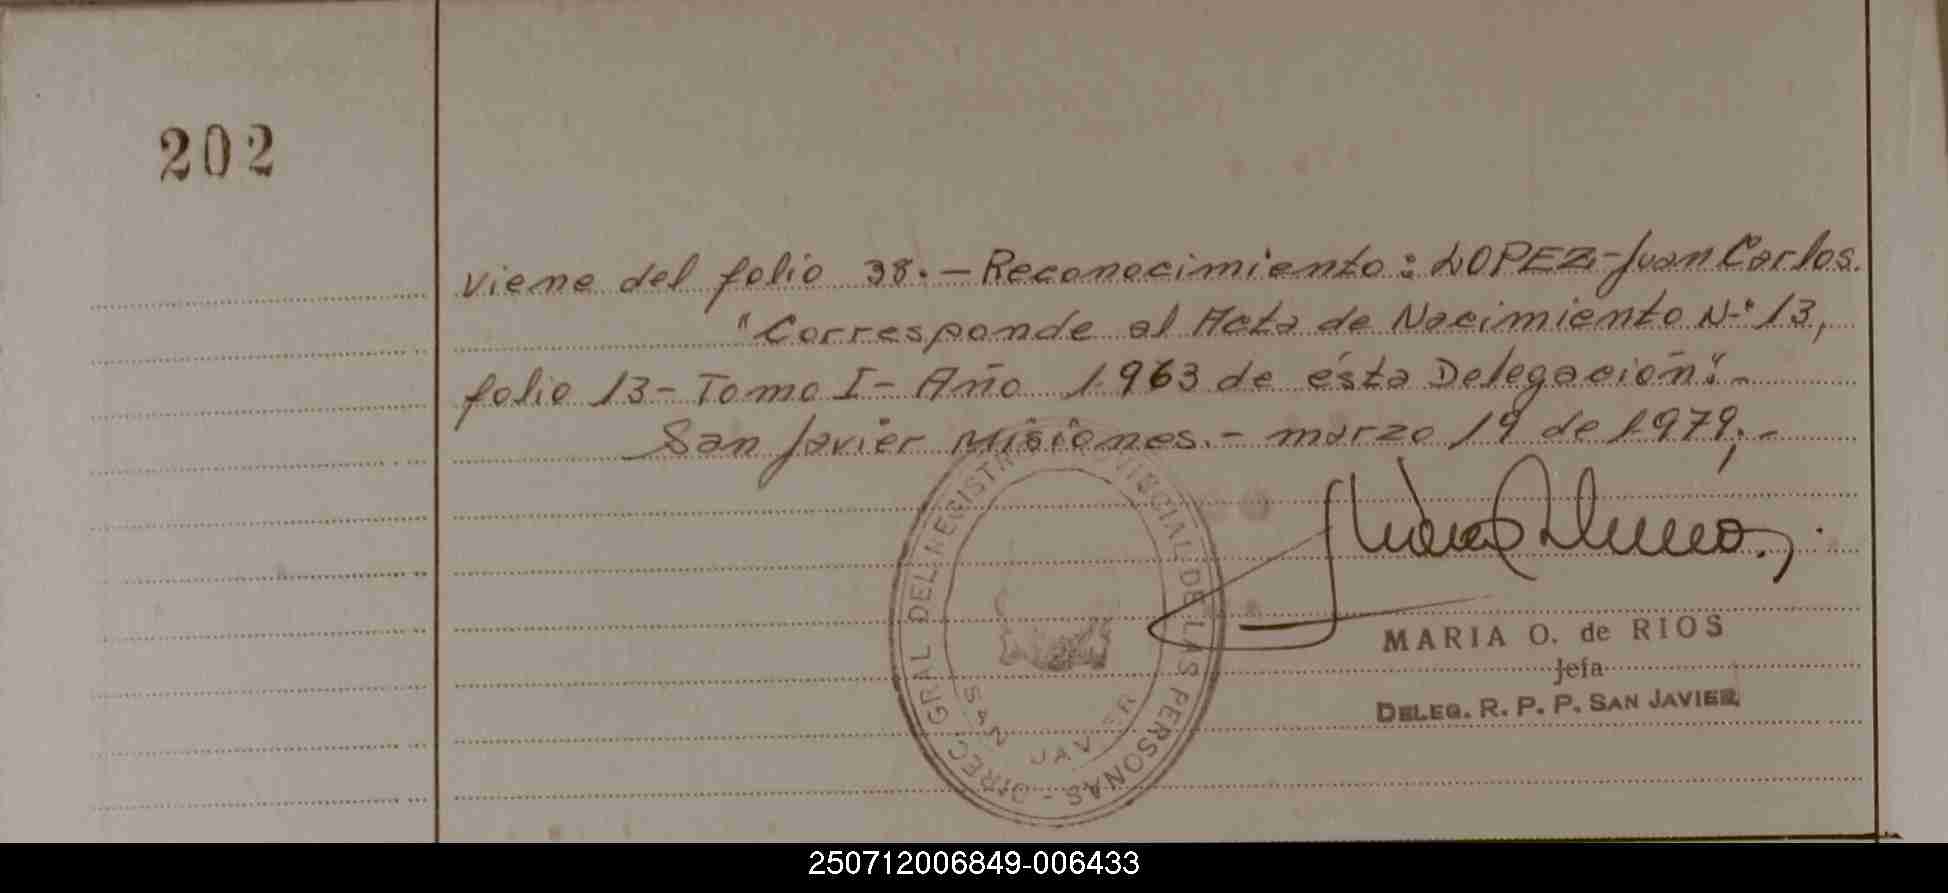 202
viene del folio 38.- Reconocimiento: LOPEZ-Juan Carlos.
"Corresponde al Acta de Nacimiento N-° 13,
folio 13- Tomo I- Año 1963 de ésta Delegación".-
San Javier Misiones.- marzo 19 de 1979,.-
DIREC. GRAL DEL REGISTR PROVINCIAL DE LAS PERSONAS -
SAN JAVIER
MARIA O. de RIOS
Jefa
DELEG. R. P. P. SAN JAVIER
250712006849-006433